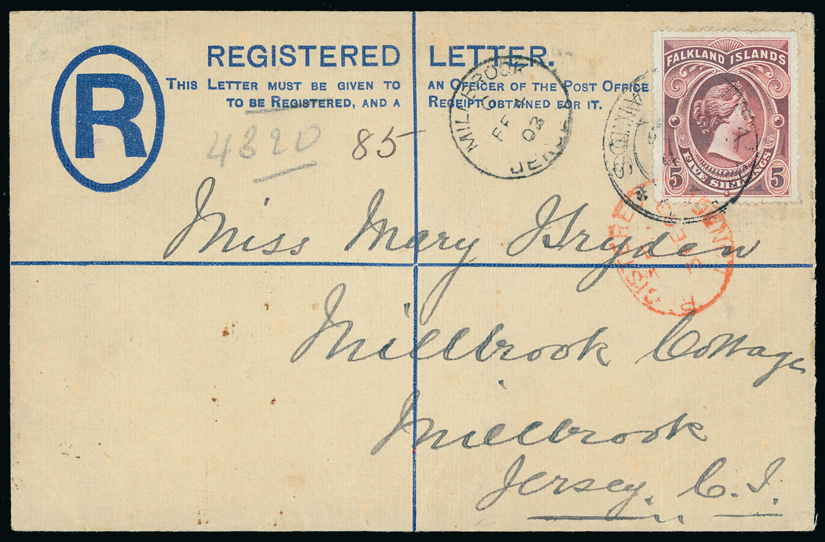 R
REGISTERED LETTER.
THIS LETTER MUST BE GIVEN TO AN OFFICER OF THE POST OFFICE
TO BE REGISTERED, AND A RECEIPT OBTAINED FOR IT.
FALKLAND ISLANDS
5 FIVE SHILLINGS 5
MILLBROOK
FE
03
JERSEY
4320
85
REGISTERED
Miss Mary Bryden
Millbrook Cottage
Millbrook
Jersey. C. I.